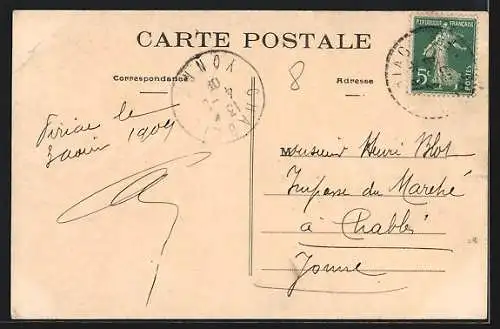 CARTE POSTALE
Correspondance
Adresse
8
REPUBLIQUE FRANÇAISE
5c
POSTES
CHABLIS
YONNE
le
1909
Monsieur Henri Blot
Impasse du Marché
à Chablis
Yonne